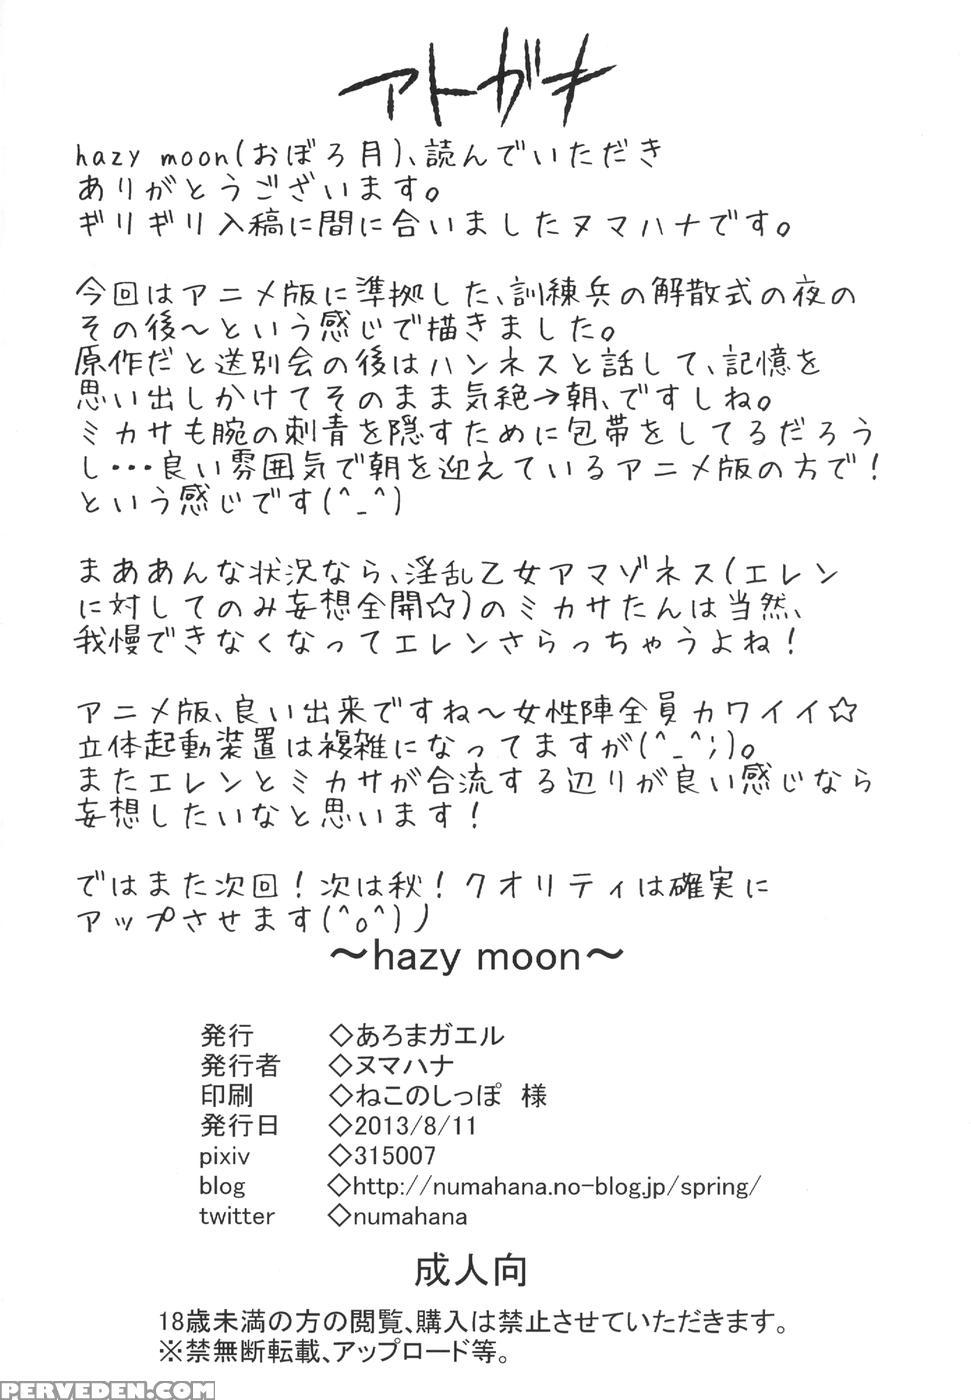 アトガキ
hazy moon(おぼろ月)、読んでいただき
ありがとうございます。
ギリギリ入稿に間に合いましたヌマハナです。
今回はアニメ版に準拠した、訓練兵の解散式の夜の
その後～という感じで描きました。
原作だと送別会の後はハンネスと話して、記憶を
思い出しかけてそのまま気絶→朝、ですしね。
ミカサも腕の刺青を隠すために包帯をしてるだろう
し･･･良い雰囲気で朝を迎えているアニメ版の方で！
という感じです(^_^)
まああんな状況なら、淫乱乙女アマゾネス(エレン
に対してのみ妄想全開☆)のミカサたんは当然、
我慢できなくなってエレンさらっちゃうよね！
アニメ版、良い出来ですね～女性陣全員カワイイ☆
立体起動装置は複雑になってますが(^_^;)。
またエレンとミカサが合流する辺りが良い感じなら
妄想したいなと思います！
ではまた次回！次は秋！クオリティは確実に
アップさせます(^o^)ノ
～hazy moon～
発行 ◇あろまガエル
発行者 ◇ヌマハナ
印刷 ◇ねこのしっぽ 様
発行日 ◇2013/8/11
pixiv ◇315007
blog ◇http://numahana.no-blog.jp/spring/
twitter ◇numahana
成人向
18歳未満の方の閲覧、購入は禁止させていただきます。
※禁無断転載、アップロード等。
PERVEDEN.COM